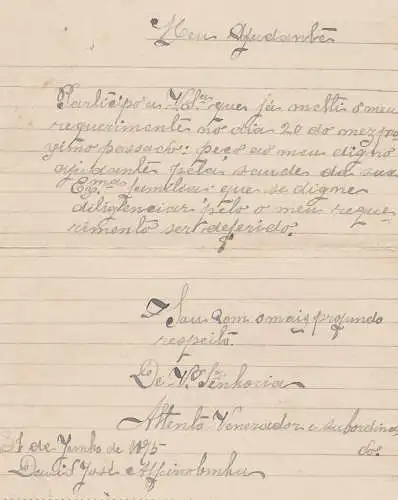 Meu Ajudante
Participo a V.ª S.ª que já metti o meu
requerimento no dia 20 do mez pro
ximo passado: peço ao meu digno
ajudante pela saude da sua
Ex.ma familia que se digne
diligenciar pelo o meu reque
rimento ser deferido.
Sou com o mais profundo
respeito.
De V.ª Senhoria
Attento Venerador e subordina
do.
1 de Junho de 1895
José e